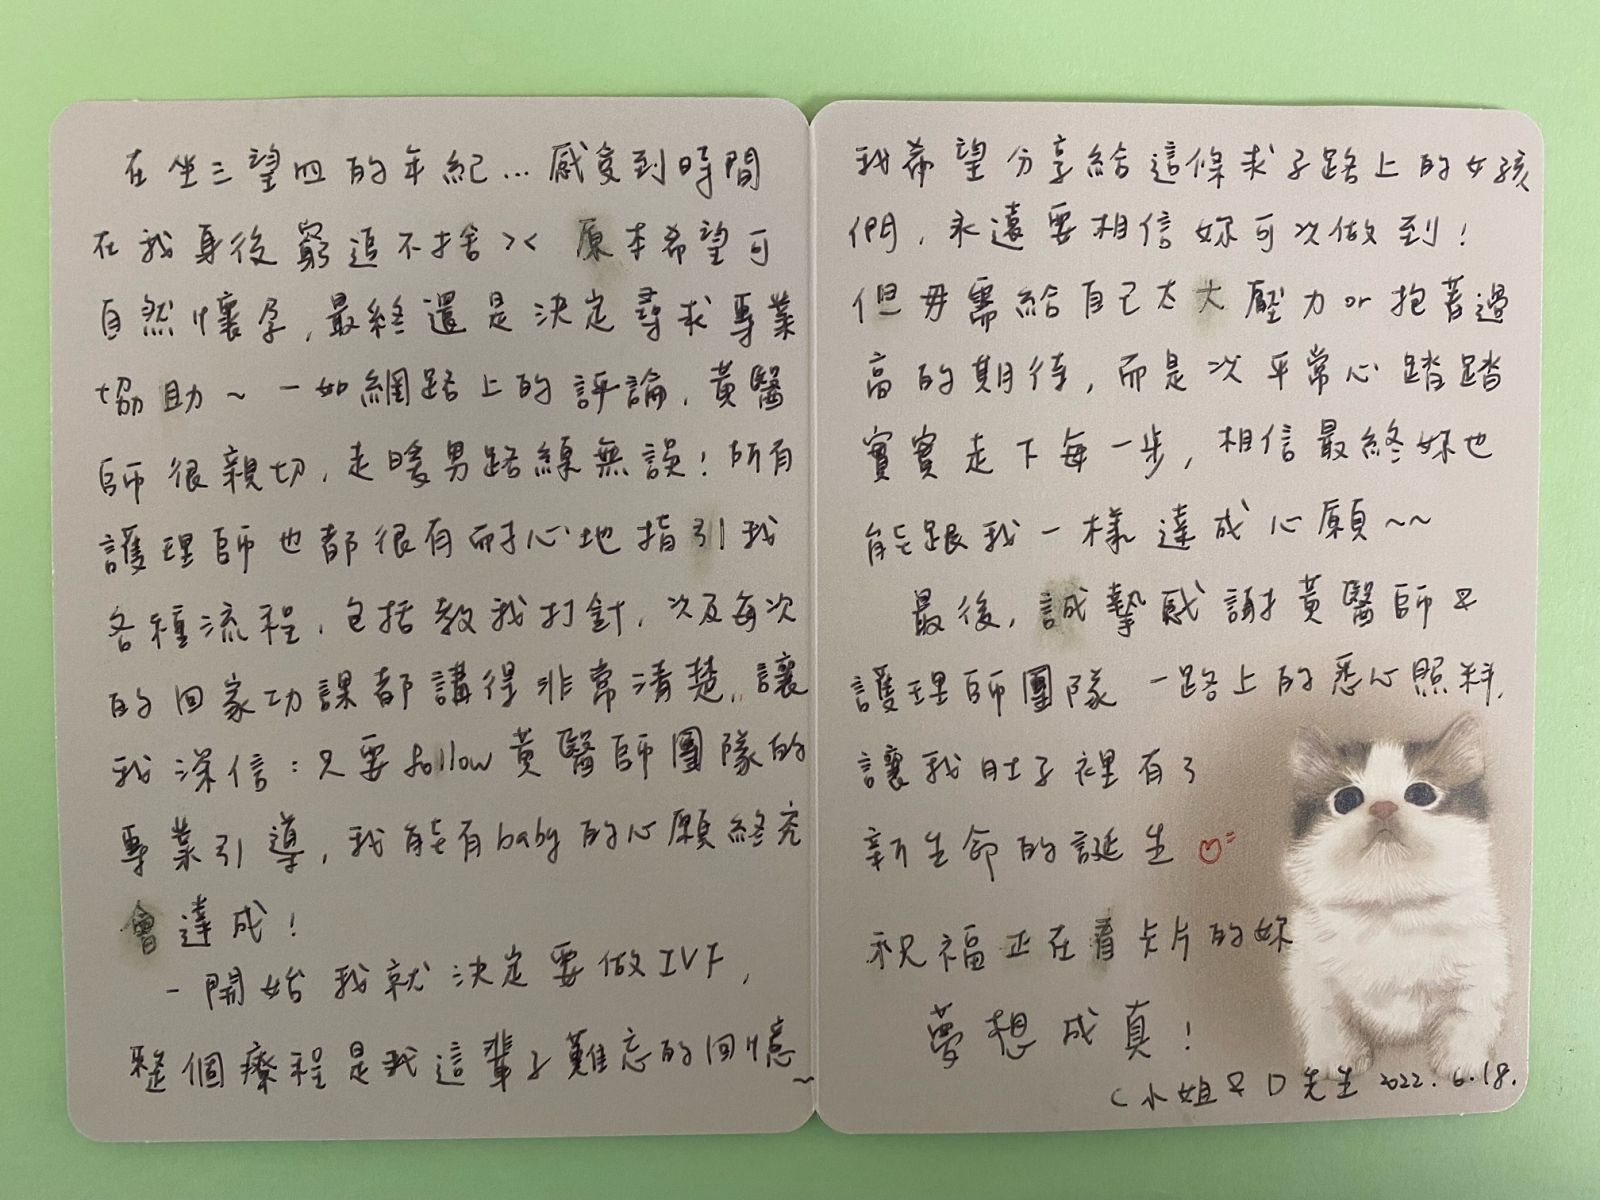 在坐三望四的年紀...感受到時間
在我身後窮追不捨>< 原本希望可
自然懷孕,最終還是決定尋求專業
協助~一如網路上的評論,黃醫
師很親切,走暖男路線無誤!所有
護理師也都很有耐心地指引我
各種流程,包括教我打針,以及每次
的回家功課都講得非常清楚,讓
我深信:只要follow黃醫師團隊的
專業引導,我能有baby的心願終究
會達成!
一開始我就決定要做IVF,
整個療程是我這輩子難忘的回憶~
我希望分享給這條求子路上的女孩
們,永遠要相信妳可以做到!
但毋需給自己太大壓力or抱著過
高的期待,而是以平常心踏踏
實實走下每一步,相信最終妳也
能跟我一樣達成心願~~
最後,誠摯感謝黃醫師&
護理師團隊一路上的悉心照料,
讓我肚子裡有了
新生命的誕生♡
祝福正在看卡片的妳
夢想成真!
C小姐&D先生 2022.6.18.